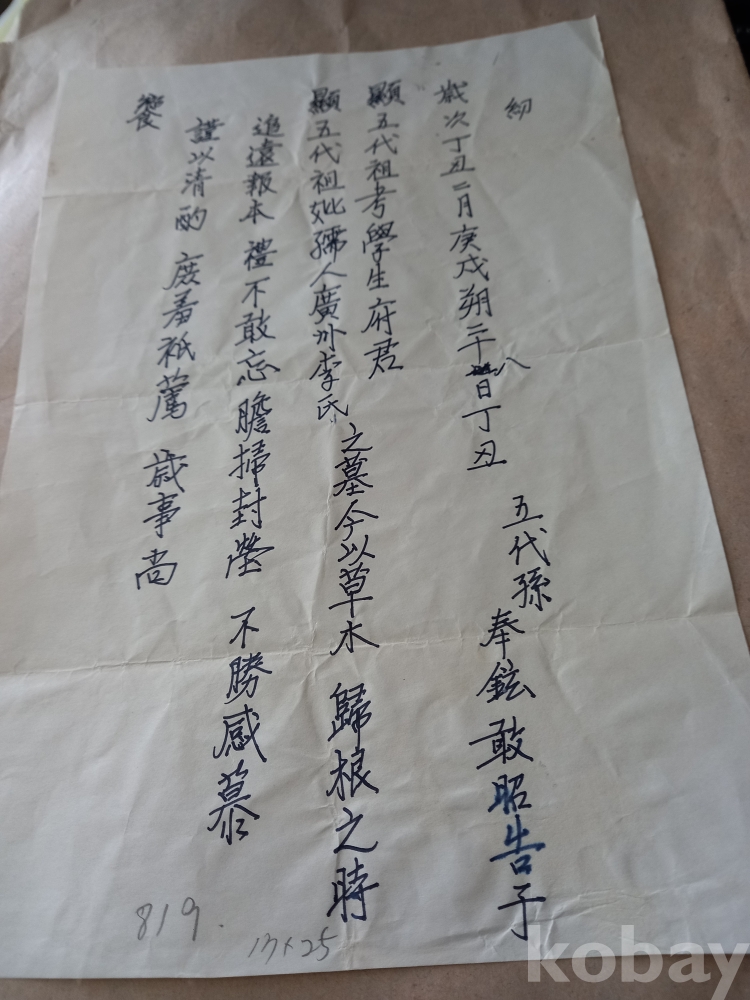 紉
歲次丁丑二月庚戌朔二十八日丁丑 五代孫 奉鉉 敢昭告于
顯五代祖考學生府君
顯五代祖妣孺人廣州李氏 之墓今以草木 歸根之時
追遠報本 禮不敢忘 瞻掃封塋 不勝感慕
謹以清酌 庶羞祗薦 歲事尚
饗
819.
17×25
kobay